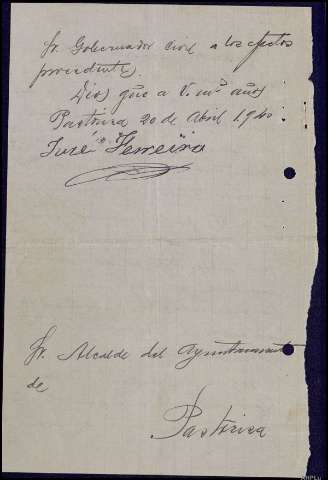 Sr. Gobernador Civil a los efectos
procedentes.
Dios gue a V. ms años
Pastoriza 20 de Abril 1940
José Ferreiro
Sr. Alcalde del Ayuntamiento
de
Pastoriza